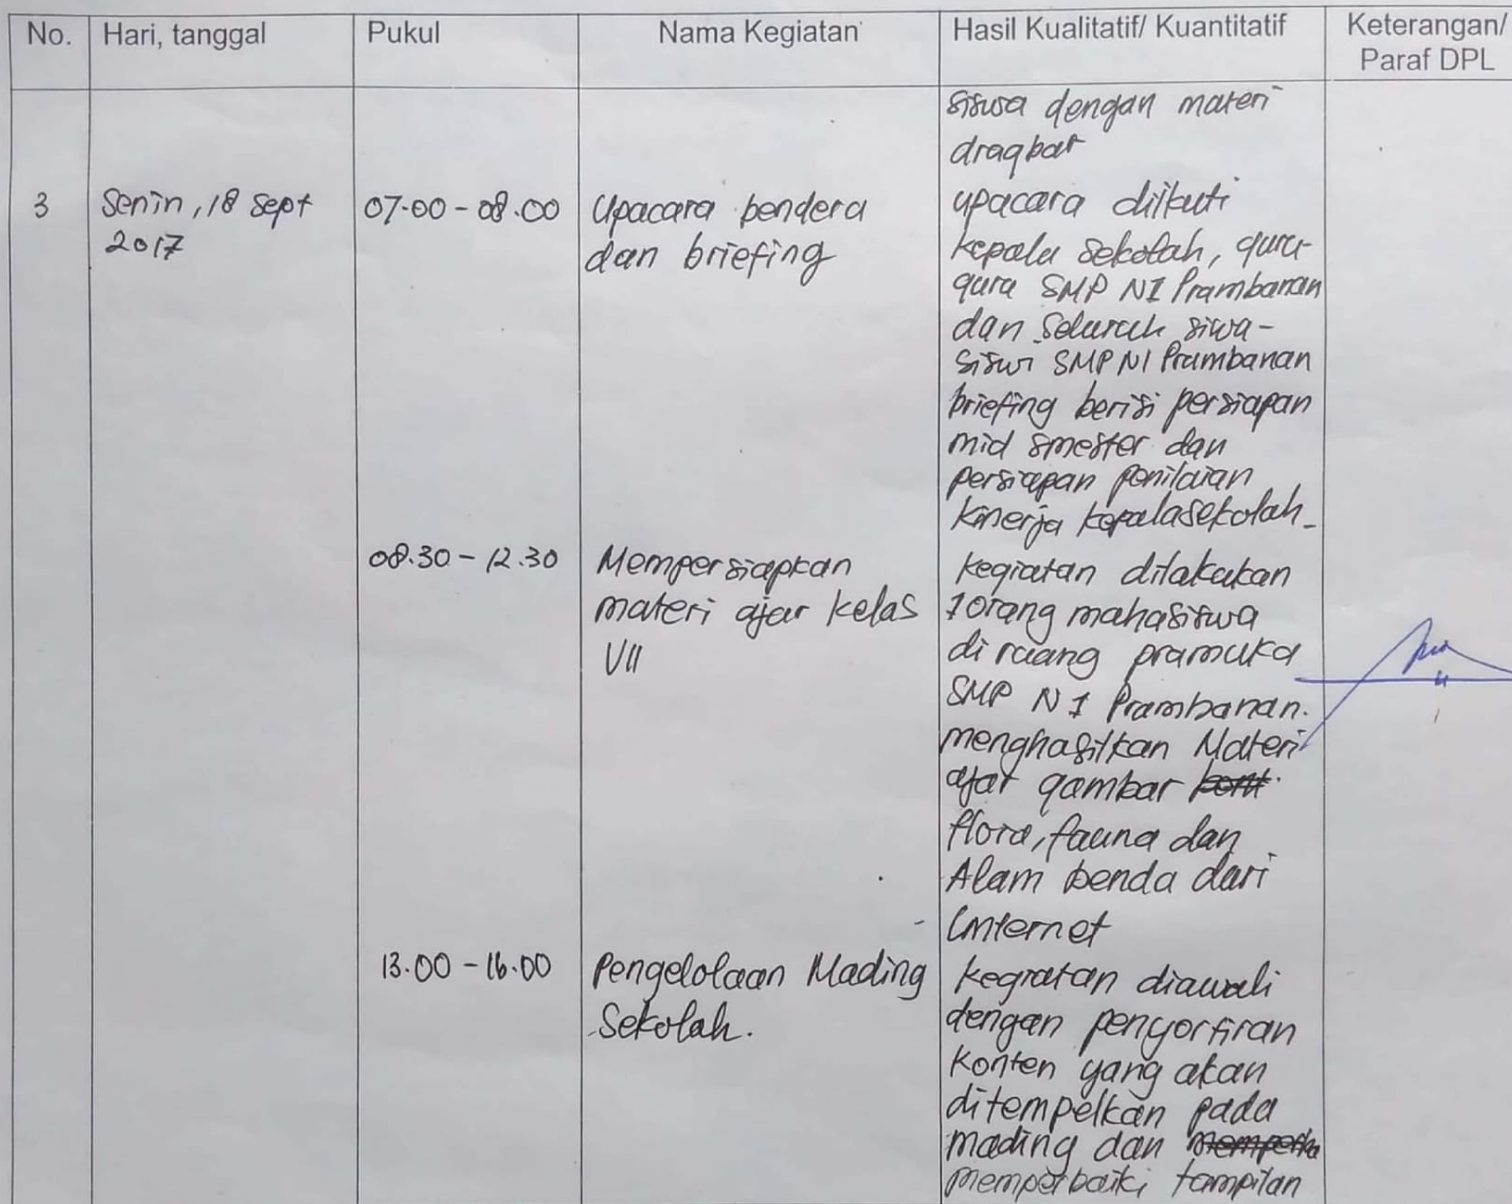 No. Hari, tanggal Pukul Nama Kegiatan Hasil Kualitatif/ Kuantitatif Keterangan/
Paraf DPL
siswa dengan materi
dragbar
3 Senin, 18 Sept 07.00 - 08.00 Upacara bendera upacara diikuti
2017 dan briefing kepala sekolah, guru-
guru SMP N1 Prambanan
dan seluruh siwa-
siswi SMP N1 Prambanan
briefing berisi persiapan
mid smester dan
persiapan penilaian
kinerja kepalasekolah.
08.30 - 12.30 Mempersiapkan kegiatan dilakukan
materi ajar kelas 1 orang mahasiswa
VII di ruang pramuka
SMP N 1 Prambanan.
menghasilkan Materi
ajar gambar
flora, fauna dan
Alam benda dari
Internet
13.00 - 16.00 Pengelolaan Mading kegiatan diawali
Sekolah. dengan penyortiran
konten yang akan
ditempelkan pada
mading dan memperba
memperbaiki tampilan